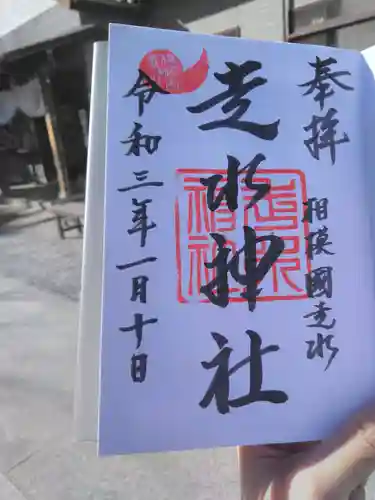 奉拝
相模國走水
走水神社
走水神社
令和三年一月十日